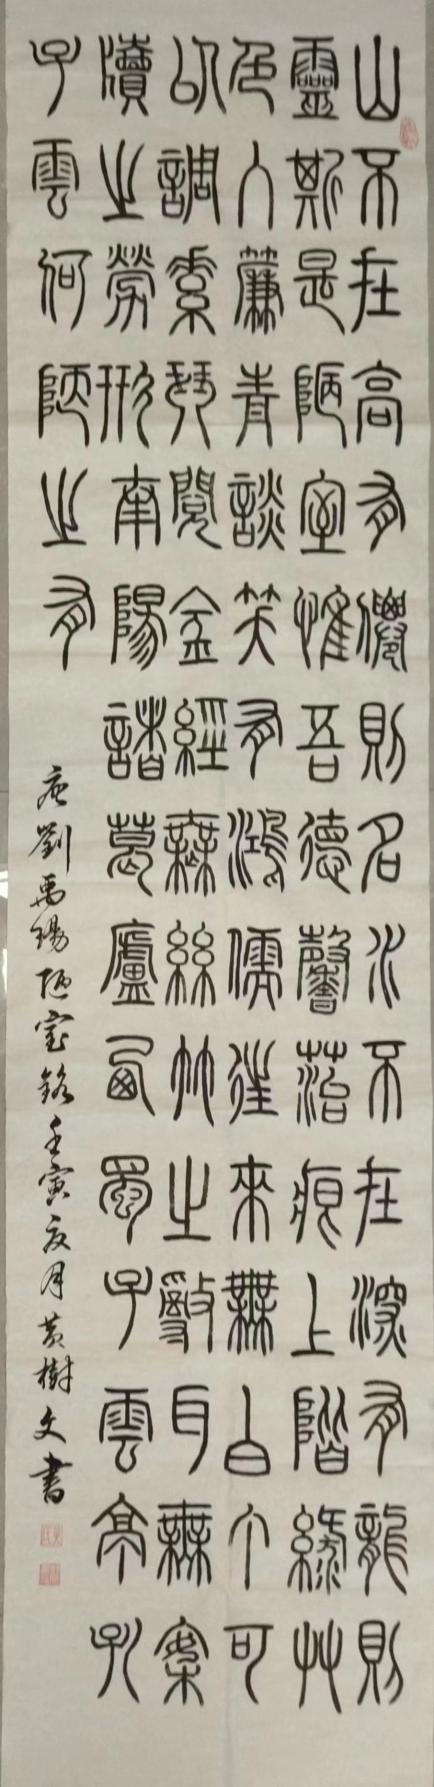 山不在高有僊則名水不在深有龍則
靈斯是陋室惟吾德馨苔痕上階綠艸
色入簾青談笑有鴻儒往來無白丁可
以調素琴閱金經無絲竹之亂耳無案
牘之勞形南陽諸葛廬西蜀子雲亭孔
子雲何陋之有
唐劉禹錫陋室銘壬寅夏月黃樹文書